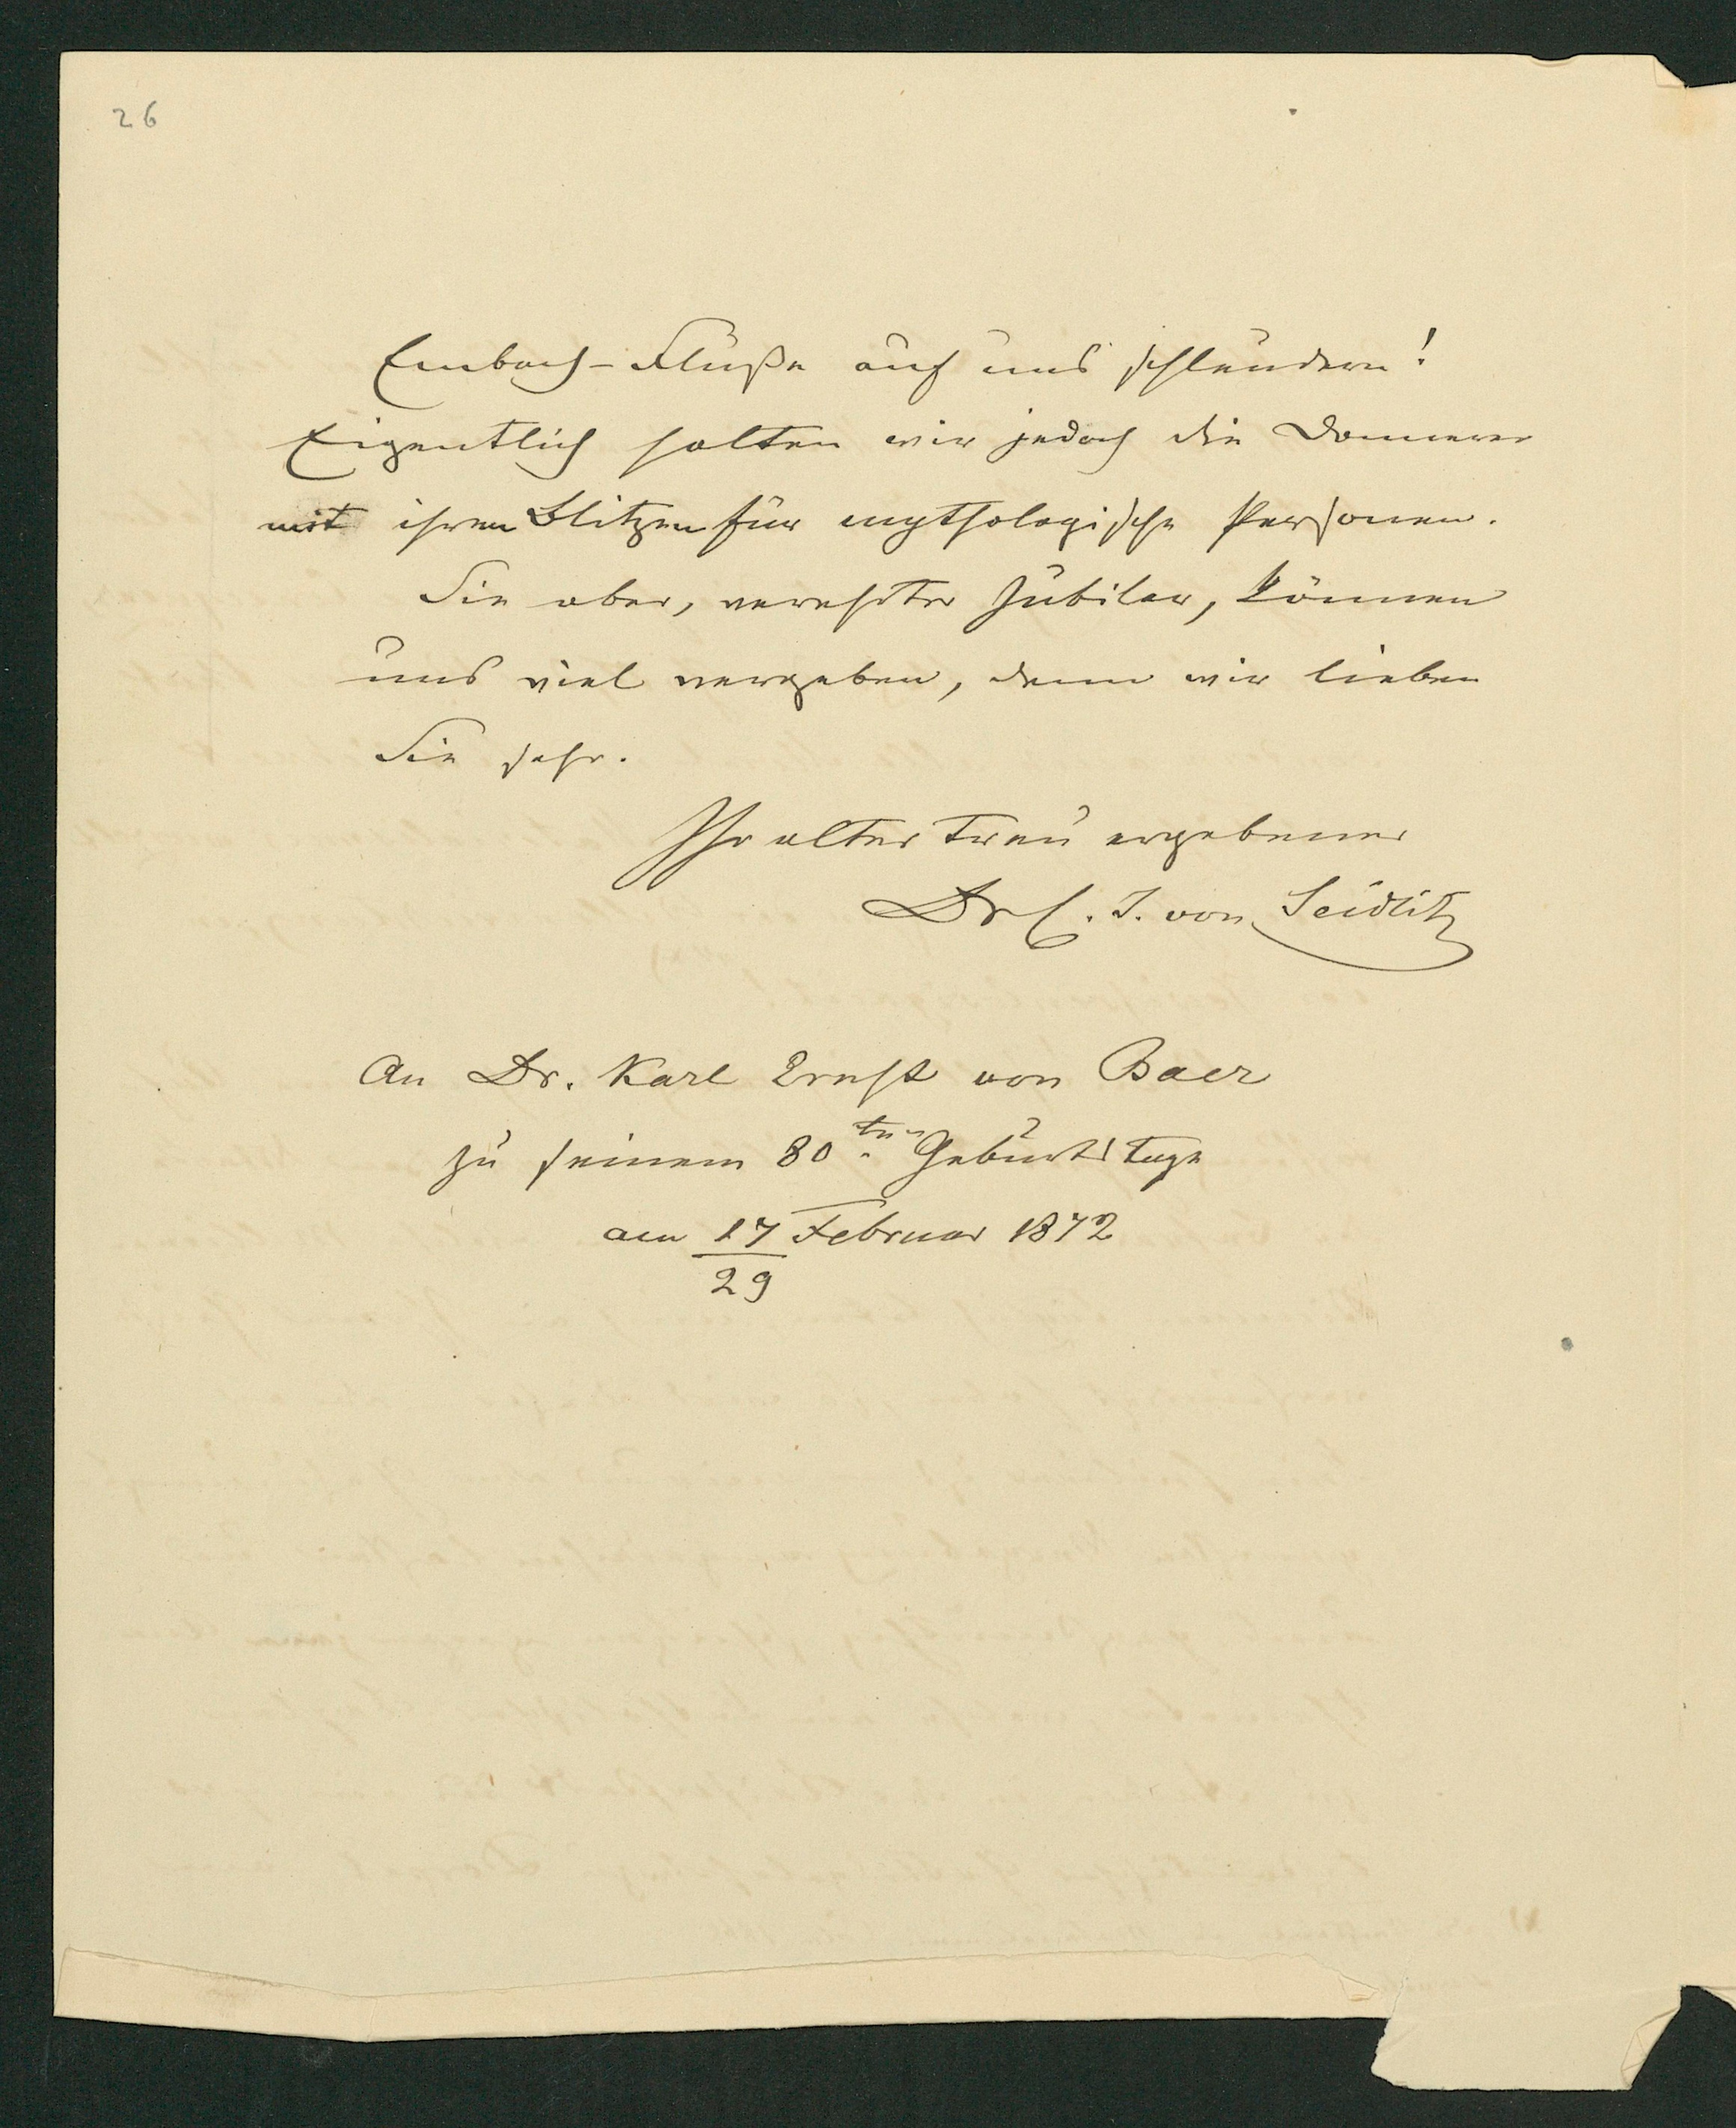 26
Embach-Fluße auf uns schleudern!
Eigentlich halten wir jedoch die Donnerer
mit ihren Blitzen für mythologische Personen.
Sie aber, verehrter Jubilar, können
uns viel vergeben, denn wir lieben
Sie sehr.
Ihr alter treu ergebener
Dr C. J. von Seidlitz
An Dr. Karl Ernst von Baer
zu seinem 80ten Geburtstage
am 17 Februar 1872
29